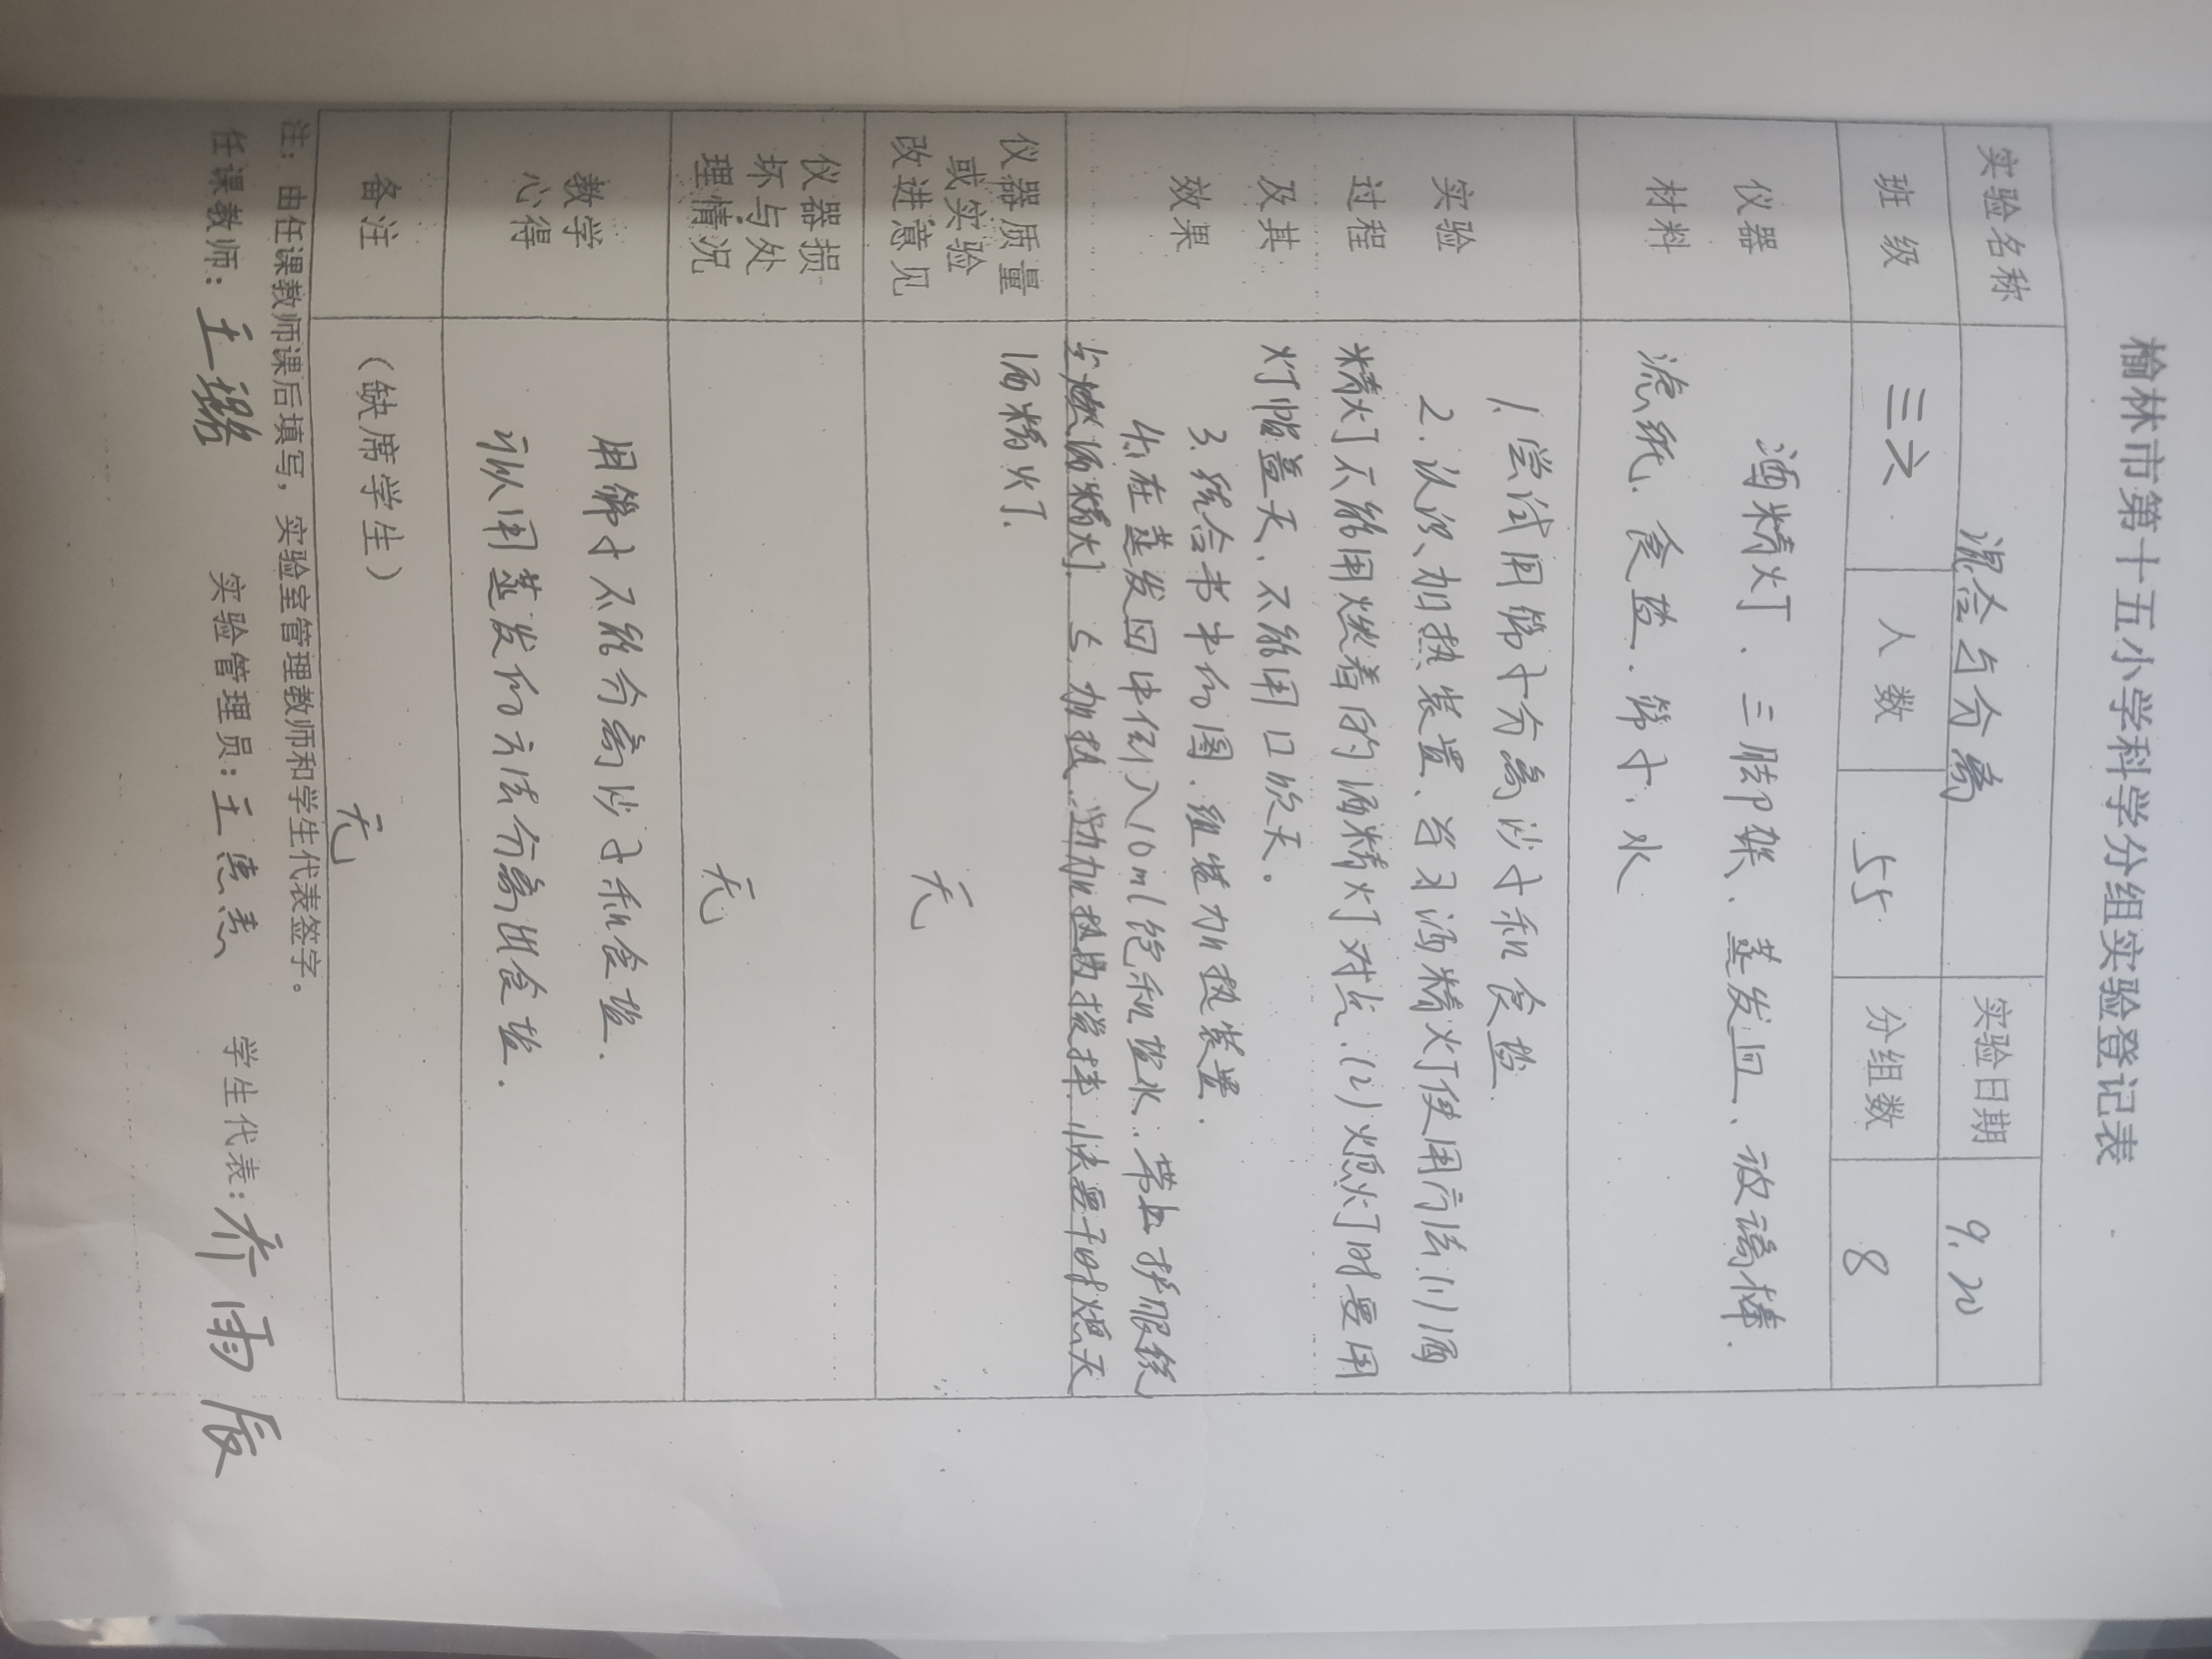 榆林市第十五小学科学分组实验登记表
实验名称 混合与分离 实验日期 9.20
班级 三六 人数 55 分组数 8
仪器 酒精灯、三脚架、蒸发皿、玻璃棒.
材料 滤纸、食盐、筛子、水
1.尝试用筛子分离沙子和食盐
实验 2.认识加热装置、学习酒精灯使用方法(1)酒
过程 精灯不能用燃着的酒精灯对点.(2)熄灯时要用
及其 灯帽盖灭、不能用口吹灭。
效果 3.结合书中的图、组装加热装置.
4.在蒸发皿中倒入10ml饱和盐水.带上护眼镜
点燃酒精灯. 5.加热.边加热边搅拌.快要干时熄灭
酒精灯.
仪器质量
或实验
改进意见 无
仪器损
坏与处
理情况 无
教学 用筛子不能分离沙子和食盐.
心得 可以用蒸发的方法分离出食盐.
备注 （缺席学生） 无
注：由任课教师课后填写，实验室管理教师和学生代表签字。
任课教师：王璐 实验管理员：王 学生代表：乔雨辰